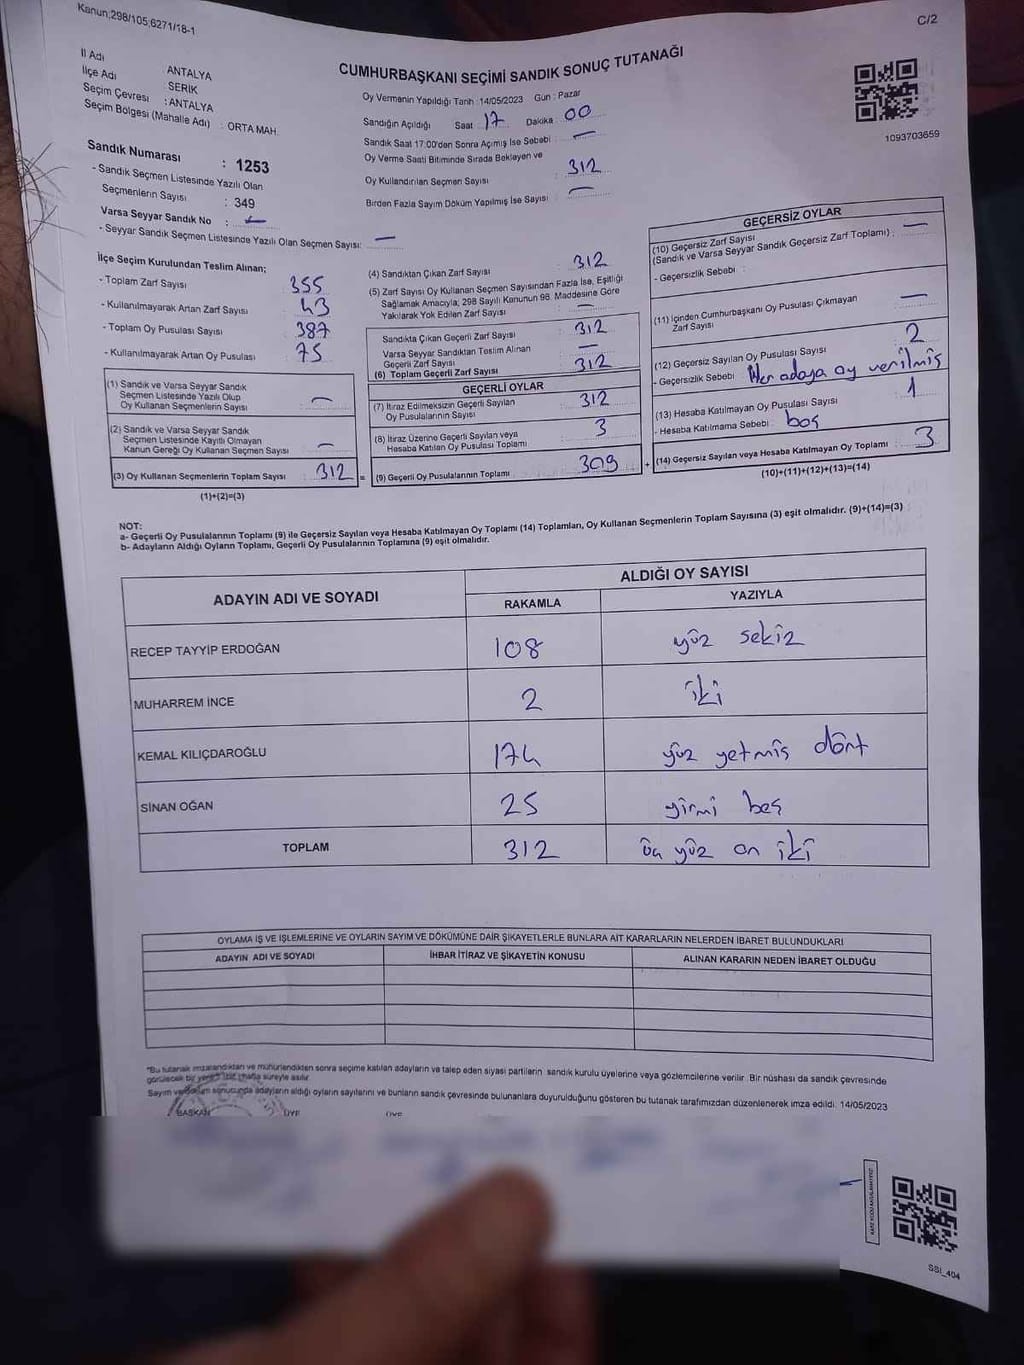 Kanun;298/105,6271/18-1
C/2
İl Adı : ANTALYA
İlçe Adı : SERİK
Seçim Çevresi : ANTALYA
Seçim Bölgesi (Mahalle Adı) : ORTA MAH.
Sandık Numarası : 1253
- Sandık Seçmen Listesinde Yazılı Olan
Seçmenlerin Sayısı : 349
Varsa Seyyar Sandık No : —
- Seyyar Sandık Seçmen Listesinde Yazılı Olan Seçmen Sayısı: —
CUMHURBAŞKANI SEÇİMİ SANDIK SONUÇ TUTANAĞI
Oy Vermenin Yapıldığı Tarih : 14/05/2023 Gün : Pazar
Sandığın Açıldığı Saat : 17 Dakika : 00
Sandık Saat 17:00'den Sonra Açımış İse Sebebi : —
Oy Verme Saati Bitiminde Sırada Bekleyen ve
Oy Kullandırılan Seçmen Sayısı : 312
Birden Fazla Sayım Döküm Yapılmış İse Sayısı : —
1093703659
İlçe Seçim Kurulundan Teslim Alınan;
- Toplam Zarf Sayısı : 355
- Kullanılmayarak Artan Zarf Sayısı : 43
- Toplam Oy Pusulası Sayısı : 387
- Kullanılmayarak Artan Oy Pusulası : 75
(1) Sandık ve Varsa Seyyar Sandık
Seçmen Listesinde Yazılı Olup
Oy Kullanan Seçmenlerin Sayısı : —
(2) Sandık ve Varsa Seyyar Sandık
Seçmen Listesinde Kayıtlı Olmayan
Kanun Gereği Oy Kullanan Seçmen Sayısı : —
(3) Oy Kullanan Seçmenlerin Toplam Sayısı : 312
(1)+(2)=(3)
=
(4) Sandıktan Çıkan Zarf Sayısı : 312
(5) Zarf Sayısı Oy Kullanan Seçmen Sayısından Fazla İse, Eşitliği
Sağlamak Amacıyla; 298 Sayılı Kanunun 98. Maddesine Göre
Yakılarak Yok Edilen Zarf Sayısı : —
Sandıkta Çıkan Geçerli Zarf Sayısı : 312
Varsa Seyyar Sandıktan Teslim Alınan
Geçerli Zarf Sayısı : —
(6) Toplam Geçerli Zarf Sayısı : 312
GEÇERLİ OYLAR
(7) İtiraz Edilmeksizin Geçerli Sayılan
Oy Pusulalarının Sayısı : 312
(8) İtiraz Üzerine Geçerli Sayılan veya
Hesaba Katılan Oy Pusulası Toplamı : 3
(9) Geçerli Oy Pusulalarının Toplamı : 309
+
GEÇERSİZ OYLAR
(10) Geçersiz Zarf Sayısı
(Sandık ve Varsa Seyyar Sandık Geçersiz Zarf Toplamı) : —
- Geçersizlik Sebebi :
(11) İçinden Cumhurbaşkanı Oy Pusulası Çıkmayan
Zarf Sayısı : —
(12) Geçersiz Sayılan Oy Pusulası Sayısı : 2
- Geçersizlik Sebebi : Her adaya oy verilmiş
(13) Hesaba Katılmayan Oy Pusulası Sayısı : 1
- Hesaba Katılmama Sebebi : boş
(14) Geçersiz Sayılan veya Hesaba Katılmayan Oy Toplamı : 3
(10)+(11)+(12)+(13)=(14)
NOT:
a- Geçerli Oy Pusulalarının Toplamı (9) ile Geçersiz Sayılan veya Hesaba Katılmayan Oy Toplamı (14) Toplamları, Oy Kullanan Seçmenlerin Toplam Sayısına (3) eşit olmalıdır. (9)+(14)=(3)
b- Adayların Aldığı Oyların Toplamı, Geçerli Oy Pusulalarının Toplamına (9) eşit olmalıdır.
ADAYIN ADI VE SOYADI ALDIĞI OY SAYISI
RAKAMLA YAZIYLA
RECEP TAYYİP ERDOĞAN 108 yüz sekiz
MUHARREM İNCE 2 iki
KEMAL KILIÇDAROĞLU 174 yüz yetmiş dört
SİNAN OĞAN 25 yirmi beş
TOPLAM 312 üç yüz on iki
OYLAMA İŞ VE İŞLEMLERİNE VE OYLARIN SAYIM VE DÖKÜMÜNE DAİR ŞİKAYETLERLE BUNLARA AİT KARARLARIN NELERDEN İBARET BULUNDUKLARI
ADAYIN ADI VE SOYADI İHBAR İTİRAZ VE ŞİKAYETİN KONUSU ALINAN KARARIN NEDEN İBARET OLDUĞU
*Bu tutanak imzalandıktan ve mühürlendikten sonra seçime katılan adayların ve talep eden siyasi partilerin sandık kurulu üyelerine veya gözlemcilerine verilir. Bir nüshası da sandık çevresinde
görülecek bir yere bir hafta süreyle asılır.
Sayım ve döküm sonucunda adayların aldığı oyların sayılarını ve bunların sandık çevresinde bulunanlara duyurulduğunu gösteren bu tutanak tarafımızdan düzenlenerek imza edildi. 14/05/2023
BAŞKAN ÜYE ÜYE
SSI_404